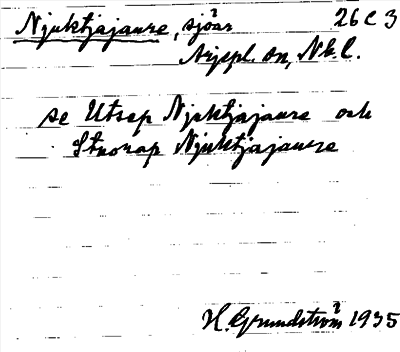 Njuktjajaure, sjöar 26 C 3
Arjepl. sn, Nb. l.
se Utsap Njuktjajaure och
Stuorap Njuktjajaure
H. Grundström 1935